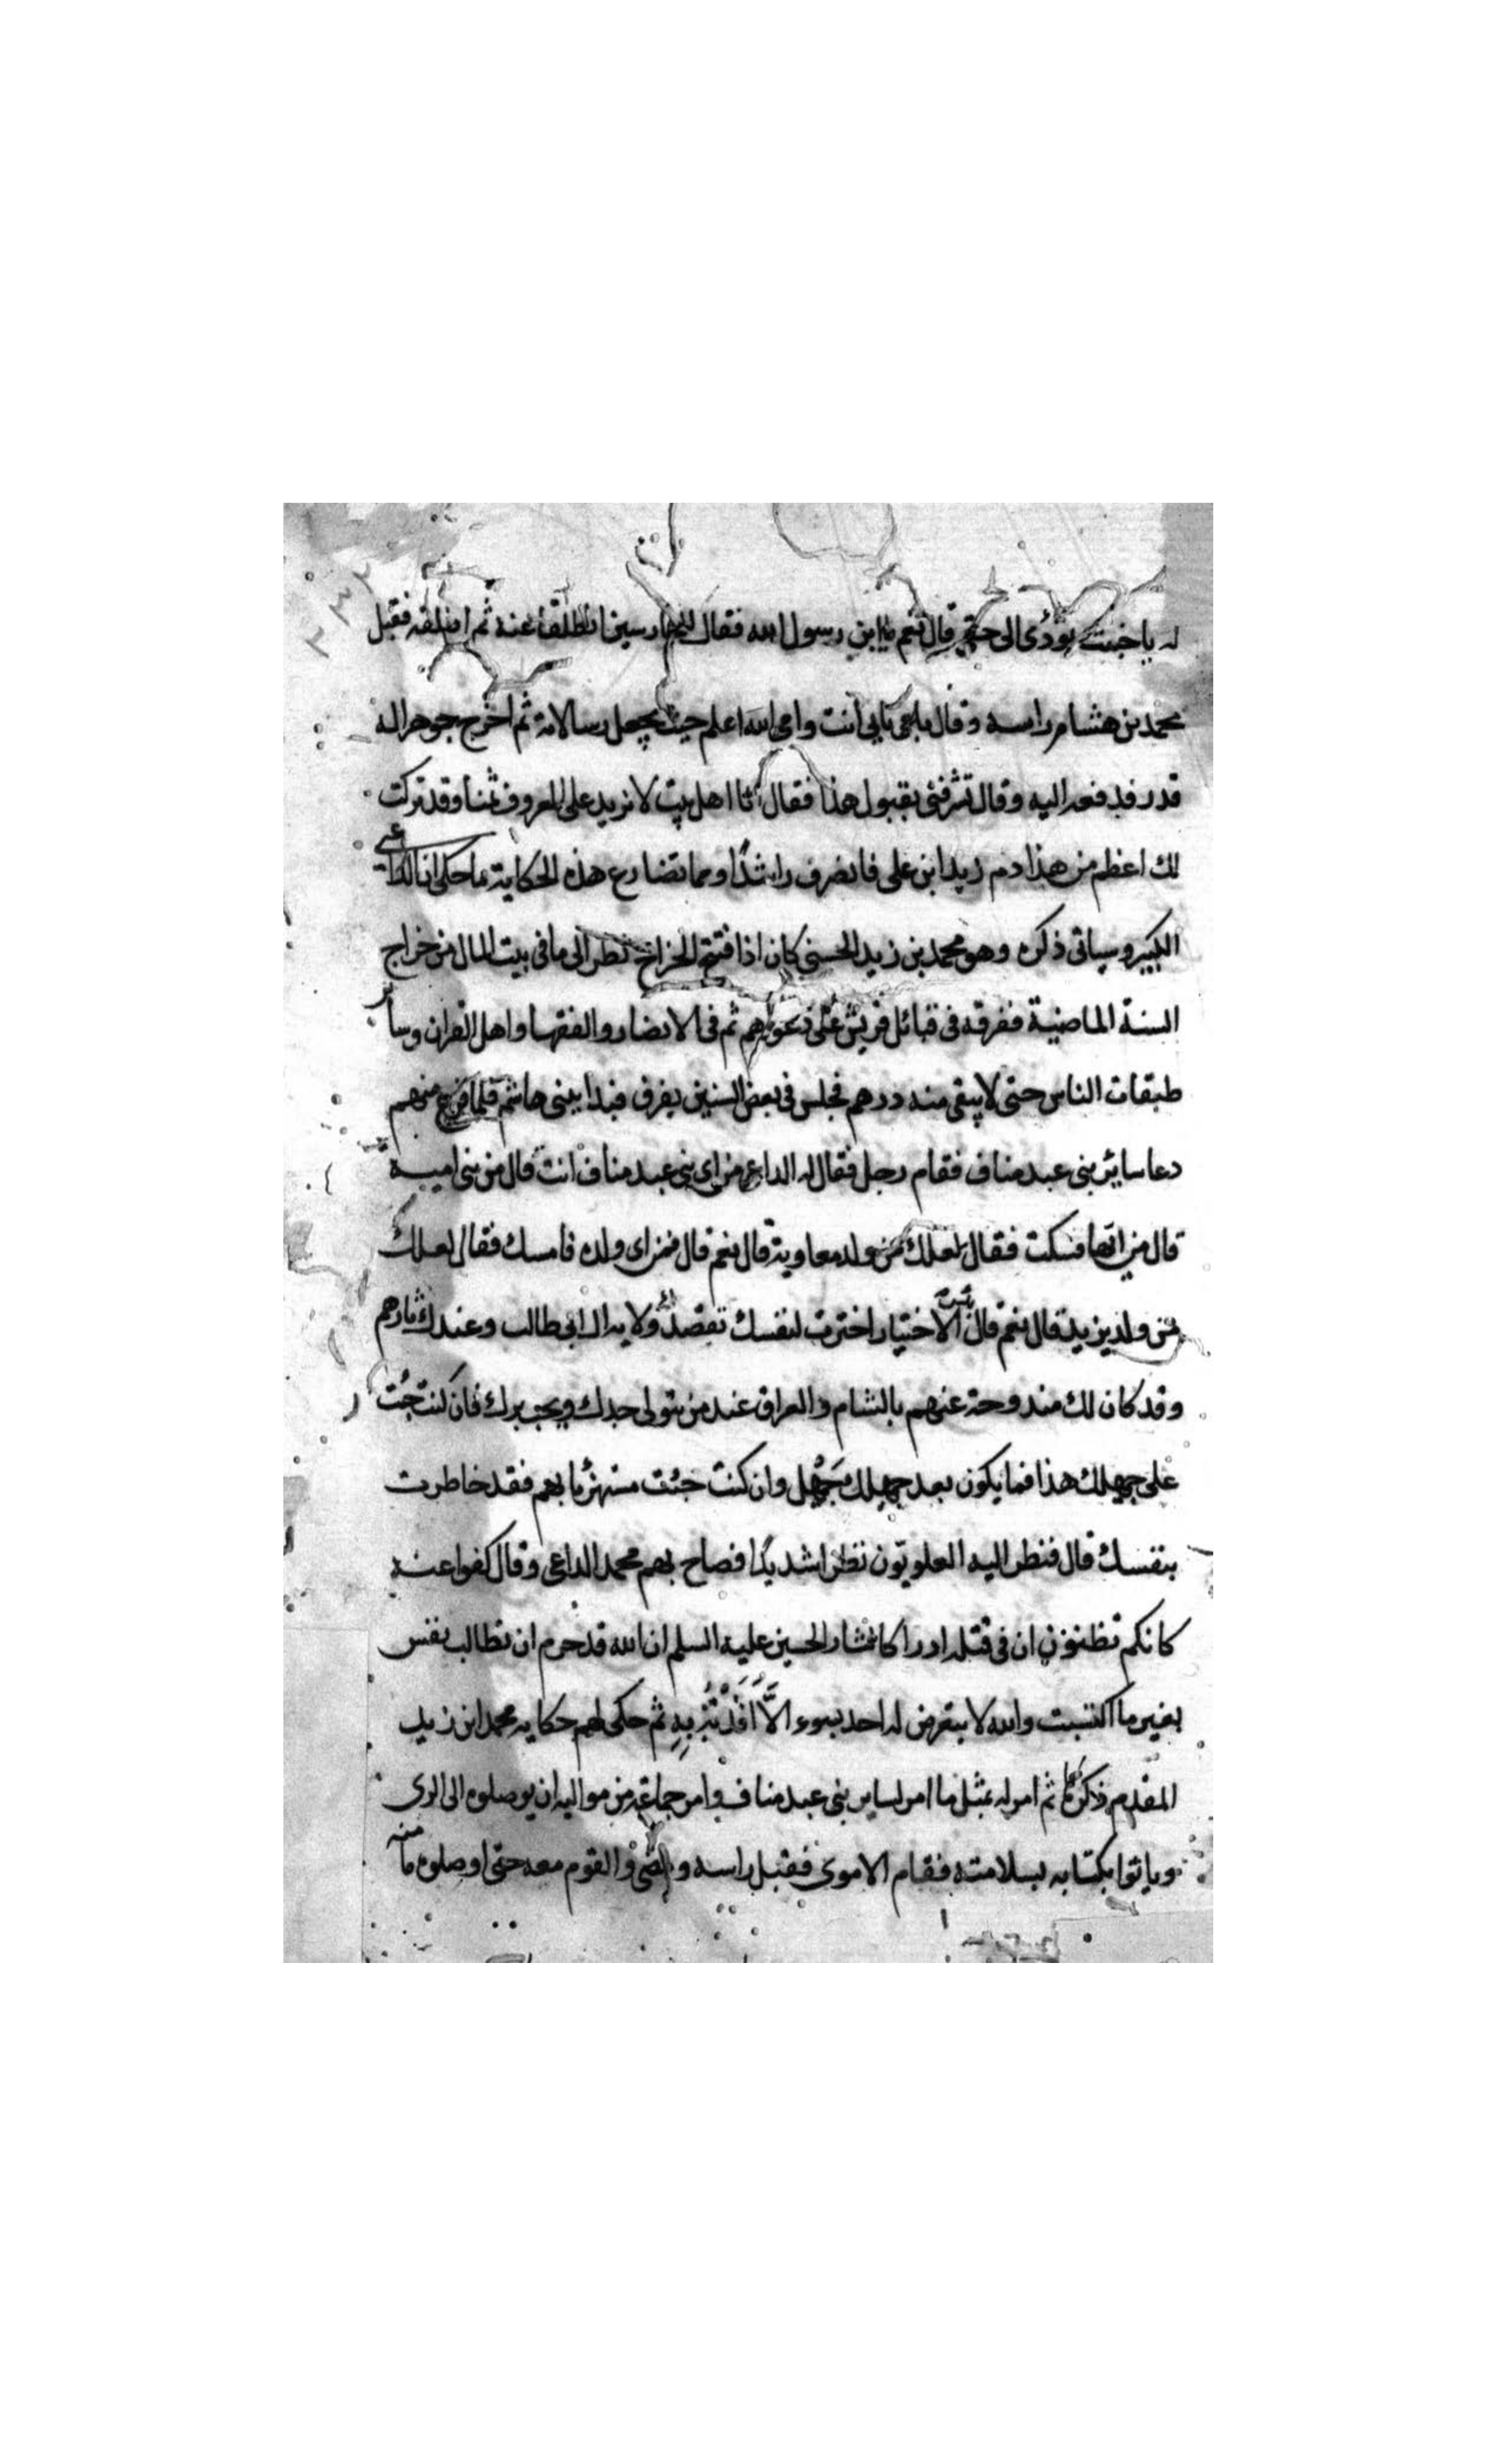 له يا خبيث تؤدى الى حقى قال نعم يا ابن رسول الله فقال للحارسين انطلقا عنه ثم اطلقه فقبل
محمد بن هشام راسه وقال بابى انت وامى الله اعلم حيث يجعل رسالاته ثم اخرج جوهرا له
قدر فدفعه اليه وقال تشرفنى بقبول هذا فقال انا اهل بيت لا نريد على المعروف ثمنا وقد تركت
لك اعظم من هذا دم زيد ابن على فانصرف راشدًا ومما تضارع هذه الحكاية ما حكى ان الداعى
الكبير وسياتى ذكره وهو محمد بن زيد الحسنى كان اذا فتح الخراج نظر الى ما فى بيت المال من خراج
السنة الماضية ففرقه فى قبائل قريش على دعواهم ثم فى الانصار والفقها واهل القران وسائر
طبقات الناس حتى لا يبقى منه درهم فجلس فى بعض السنين يفرق فبدا ببنى هاشم فلما فرغ منهم
دعا سائر بنى عبد مناف فقام رجل فقال له الداعى من اى بنى عبد مناف انت قال من بنى امية
قال من ايها فسكت فقال لعلك من ولد معاوية قال نعم قال فمن اى ولده فامسك فقال لعلك
من ولد يزيد قال نعم قال بئس الاختيار اخترت لنفسك تقصد ولاية ال ابى طالب وعندك ثارهم
وقد كان لك مندوحة عنهم بالشام والعراق عند من يتولى جدك ويحب برك فان كنت جئت
على جهلك هذا فما يكون بعد جهلك جَهْل وان كنت جئت مستهزئا بهم فقد خاطرت
بنفسك قال فنظر اليه العلويّون نظرا شديدًا فصاح بهم محمد الداعى وقال كفوا عنه
كانكم تظنون ان فى قتله ادراكا لثار الحسين عليه السلم ان الله قد حرم ان تطالب نفس
بغير ما اكتسبت والله لا يتعرض له احد بسوء الّا اقدته به ثم حكى لهم حكايه محمد ابن زيد
المقدم ذكرها ثم امر له بمثل ما امر لساير بنى عبد مناف وامر جماعة من مواليه ان يوصلوه الى الرى
وياتوا بكتابه بسلامته فقام الاموى فقبل راسه ومضى والقوم معه حتى اوصلوه مأمنه